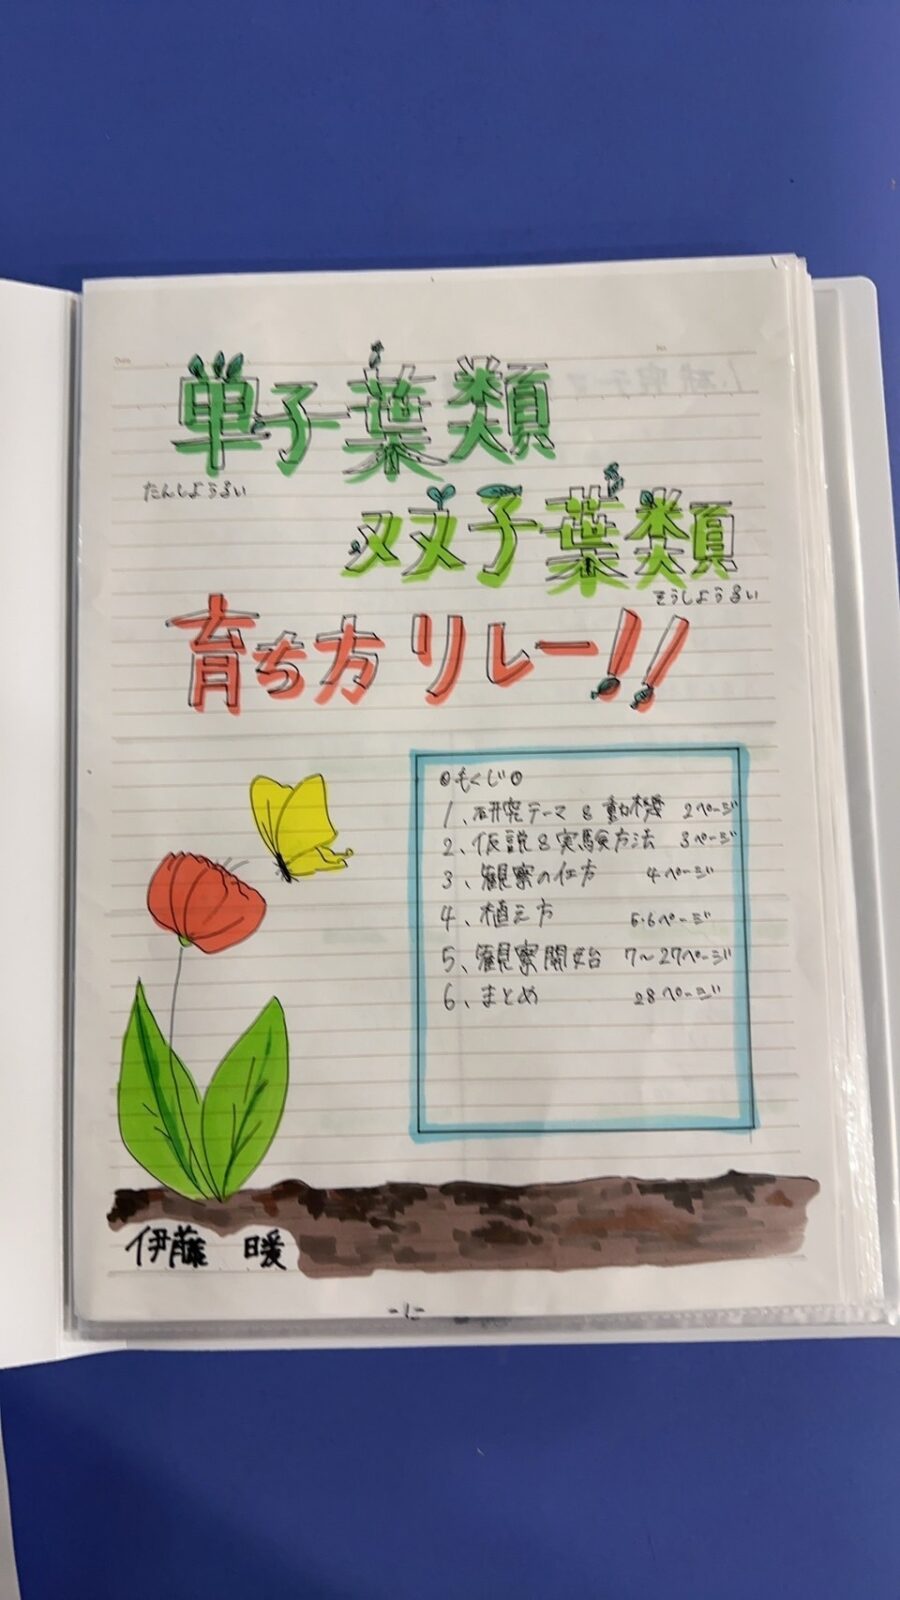 単子葉類
たんしようるい
双子葉類
そうしようるい
育ち方リレー!!
◎もくじ◎
1、研究テーマ & 動機 2ページ
2、仮説 & 実験方法 3ページ
3、観察の仕方 4ページ
4、植え方 5.6ページ
5、観察開始 7〜27ページ
6、まとめ 28ページ
伊藤 暖
-1-